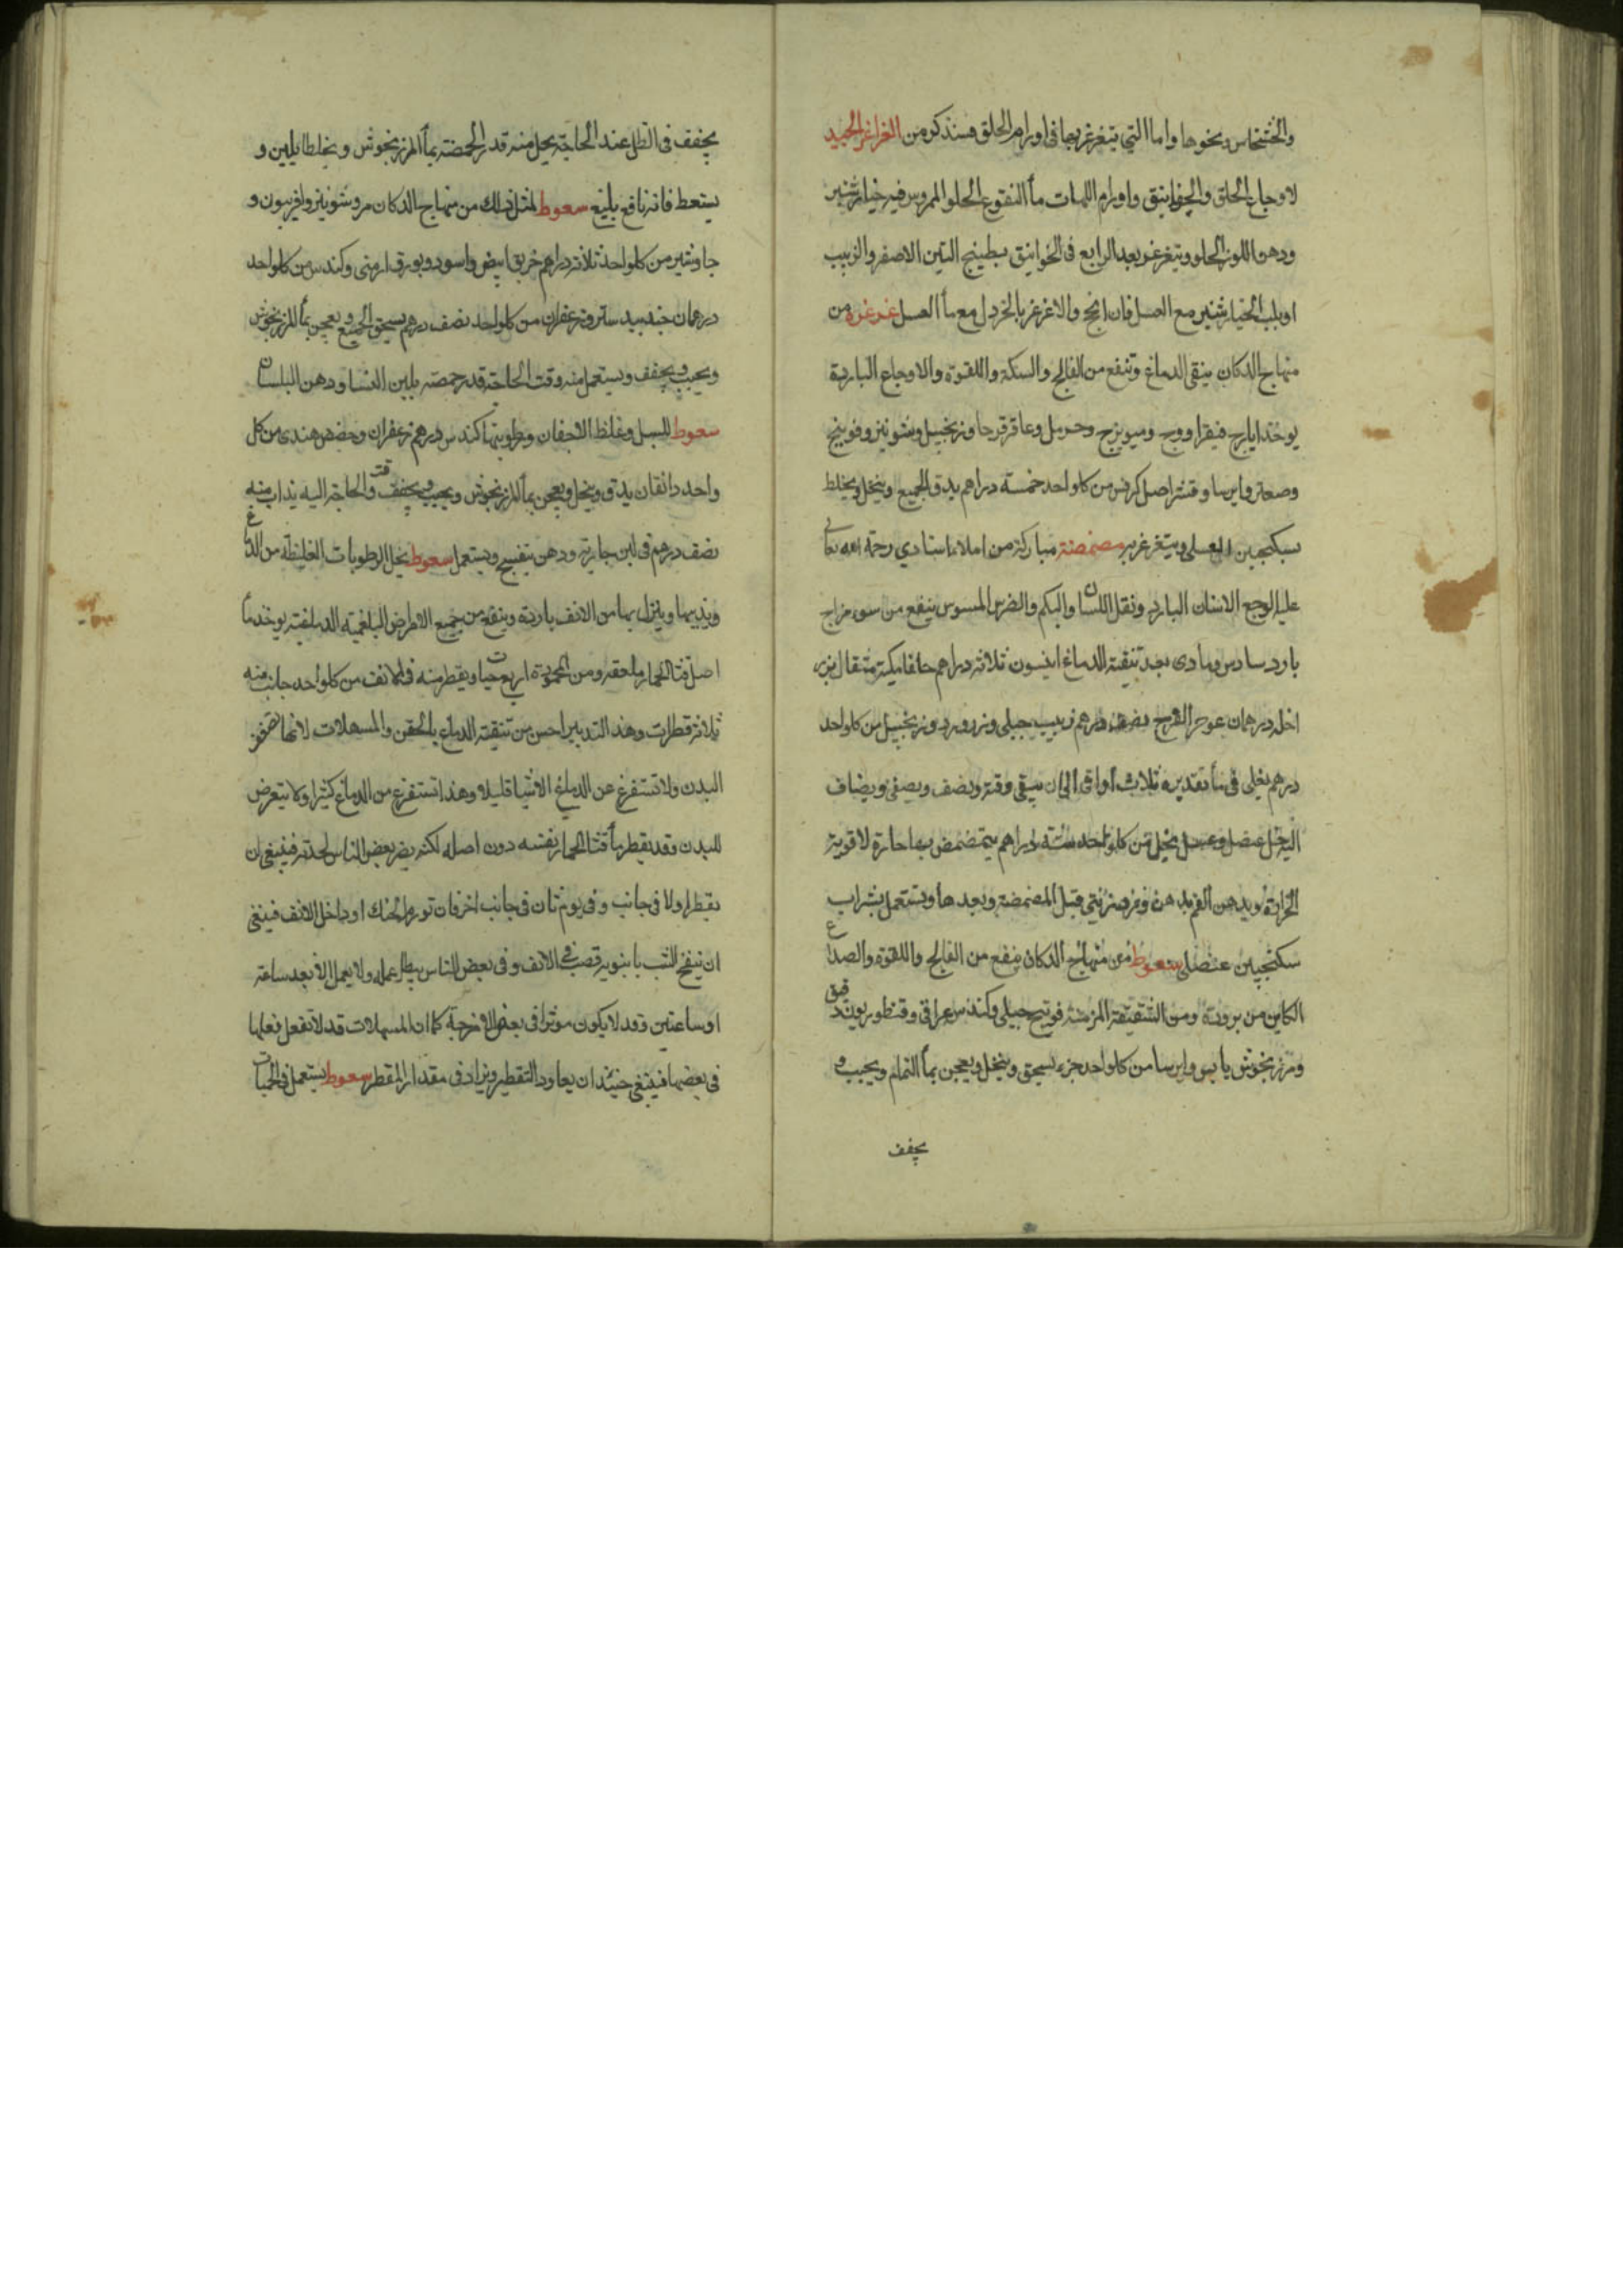 والخشخاش ونحوها واما التي يتغرغر بها في اورام الحلق فسنذكر من الغراغر الجيد
لاوجاع الحلق والخوانيق واورام اللهات ماء النقوع الحلو الممروس فيه خيار شنبر
ودهن اللوز الحلو ويتغرغر بعد الرابع في الخوانيق بطبيخ التين الاصفر والزبيب
او بلب الخيار شنبر مع العسل فان انفجر والا غرغر بالخردل مع ماء العسل غرغرة من
منهاج الدكان ينقي الدماغ وتنفع من الفالج والسكتة واللقوة والاوجاع الباردة
يوخذ ايارج فيقرا ووج وميويزج وحرمل وعاقرقرحا وزنجبيل وشونيز وفوتنج
وصعتر وايرسا وقشر اصل كرفس من كل واحد خمسة دراهم يدق الجميع وينخل ويخلط
بسكنجبين العسلي ويتغرغر به مضمضة مباركة من املاء استادي رحمة الله تعالى
عليه لوجع الاسنان البارد وثقل اللسان والبكم والضرس المسوس ينفع من سوء مزاج
بارد سادس ومادي بعد تنقية الدماغ انيسون ثلاثة دراهم مثقال بزر
درهمان عود القرح نصف درهم زبيب جبلي وزنجبيل من كل واحد
درهم يغلى في ماء تقديره ثلاث اواقي الى ان يبقى وقية ونصف ويصفى ويضاف
اليه خل عنصل وعسل نحل من كل واحد ستة دراهم يتمضمض بها حارة لا قوية
الحرارة ويدهن الفم بدهن قبل المضمضة وبعدها ويستعمل بشراب
سكنجبين عنصلي سعوط من منهاج الدكان ينفع من الفالج واللقوة والصداع
الكاين من برودة ومن الشقيقة المزمنة فوتنج جبلي وكندس عراقي وقنطوريون دقيق
ومرزنجوش يابس وايرسا من كل واحد جزء يسحق وينخل ويعجن بماء النمام ويحبب و
يجفف
يجفف في الظل عند الحاجة يحل منه قدر الحمصة بماء المرزنجوش ويخلط بلبن و
يستعط فانه نافع بليغ سعوط لمثل ذلك من منهاج الدكان مر وشونيز وافربيون و
جاوشير من كل واحد ثلاثة دراهم خربق ابيض واسود وبورق ارمني وكندس من كل واحد
درهمان جندبيدستر وزعفران من كل واحد نصف درهم يسحق الجميع ويعجن بماء المرزنجوش
ويحبب ويجفف ويستعمل منه وقت الحاجة قدر حمصة بلبن النسا ودهن البلسان
سعوط للسبل وغلظ الاجفان ورطوبتها كندس درهم زعفران وحضض هندي من كل
واحد دانقان يدق وينخل ويعجن بماء المرزنجوش ويحبب ويجفف وقت الحاجة اليه يذاب منه
نصف درهم في لبن جارية ودهن بنفسج ويستعمل سعوط يحل الرطوبات الغليظة من الدماغ
ويذيبها وينزل بها من الانف باردة وينفع من جميع الامراض البلغمية الدماغية يوخذ ماء
اصل قثا الحمار ملعقة ومن المحمودة اربع حبات ويقطر منه في الانف من كل واحد جانب منه
ثلاثة قطرات وهذا التدبير احسن من تنقية الدماغ بالحقن والمسهلات لانها تستفرغ
البدن ولا تستفرغ عن الدماغ الا شيا قليلا وهذا تستفرغ من الدماغ كثيرا ولا يتعرض
للبدن وقد يقطر ماء قثا الحمار نفسه دون اصله لكنه يضر بعض الناس لحدته فينبغي ان
يقطر اولا في جانب وفي يوم ثان في جانب اخر فان تورم الحنك او داخل الانف فينبغي
ان ينفخ الشب بانبوبة قصب في الانف وفي بعض الناس يبطل عمله ولا يعمل الا بعد ساعة
او ساعتين وقد لا يكون موثرا في بعض الامزجة كما ان المسهلات قد لا تفعل فعلها
في بعضها فينبغي حينئذ ان يعاود التقطير ويزاد في مقدار المقطر سعوط يستعمل في الحميات